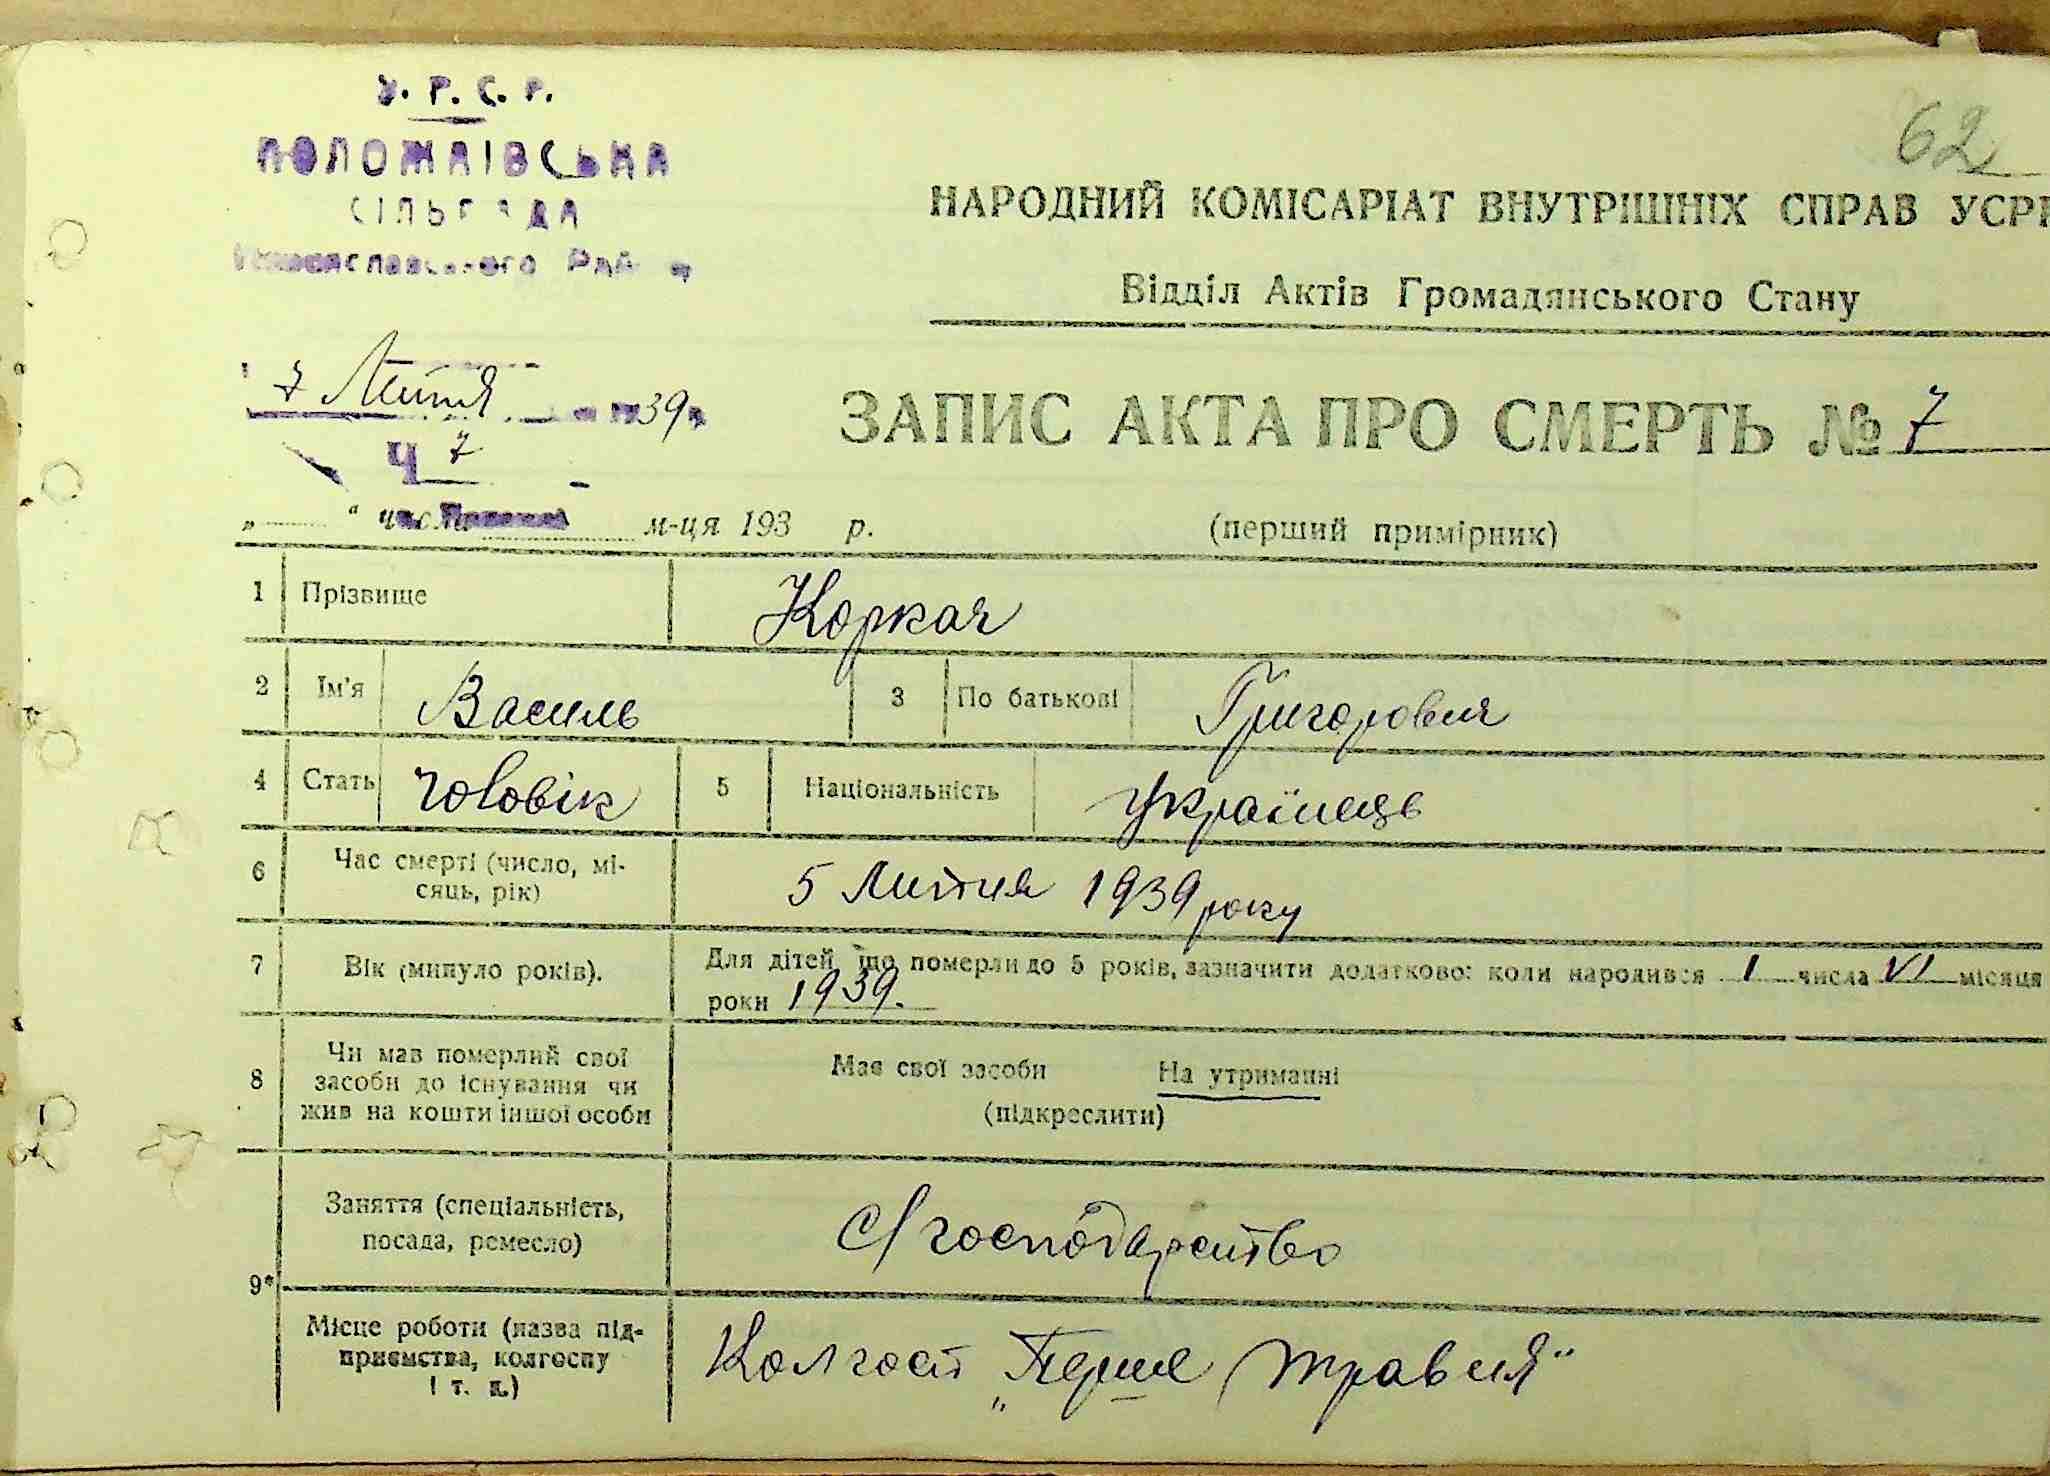 У. Р. С. Р.
ПОЛОЖАІВСЬКА
СІЛЬРАДА
62
НАРОДНИЙ КОМІСАРІАТ ВНУТРІШНІХ СПРАВ УСРР
Відділ Актів Громадянського Стану
7 Липня 1939 р
ЗАПИС АКТА ПРО СМЕРТЬ № 7
Ч 7
„ “ числа м-ця 193 р.
(перший примірник)
1 Прізвище Коркач
2 Ім'я Василь 3 По батькові Григорович
4 Стать чоловік 5 Національність українець
6 Час смерті (число, мі-
сяць, рік) 5 Липня 1939 року
7 Вік (минуло років). Для дітей, що померли до 5 років, зазначити додатково: коли народився 1 числа VI місяця
роки 1939.
8 Чи мав померлий свої
засоби до існування чи
жив на кошти іншої особи
Має свої засоби На утриманні
(підкреслити)
Заняття (спеціальність,
посада, ремесло) с/господарство
9*
Місце роботи (назва під-
приємства, колгоспу
і т. п.)
Колгосп „Перше травня"